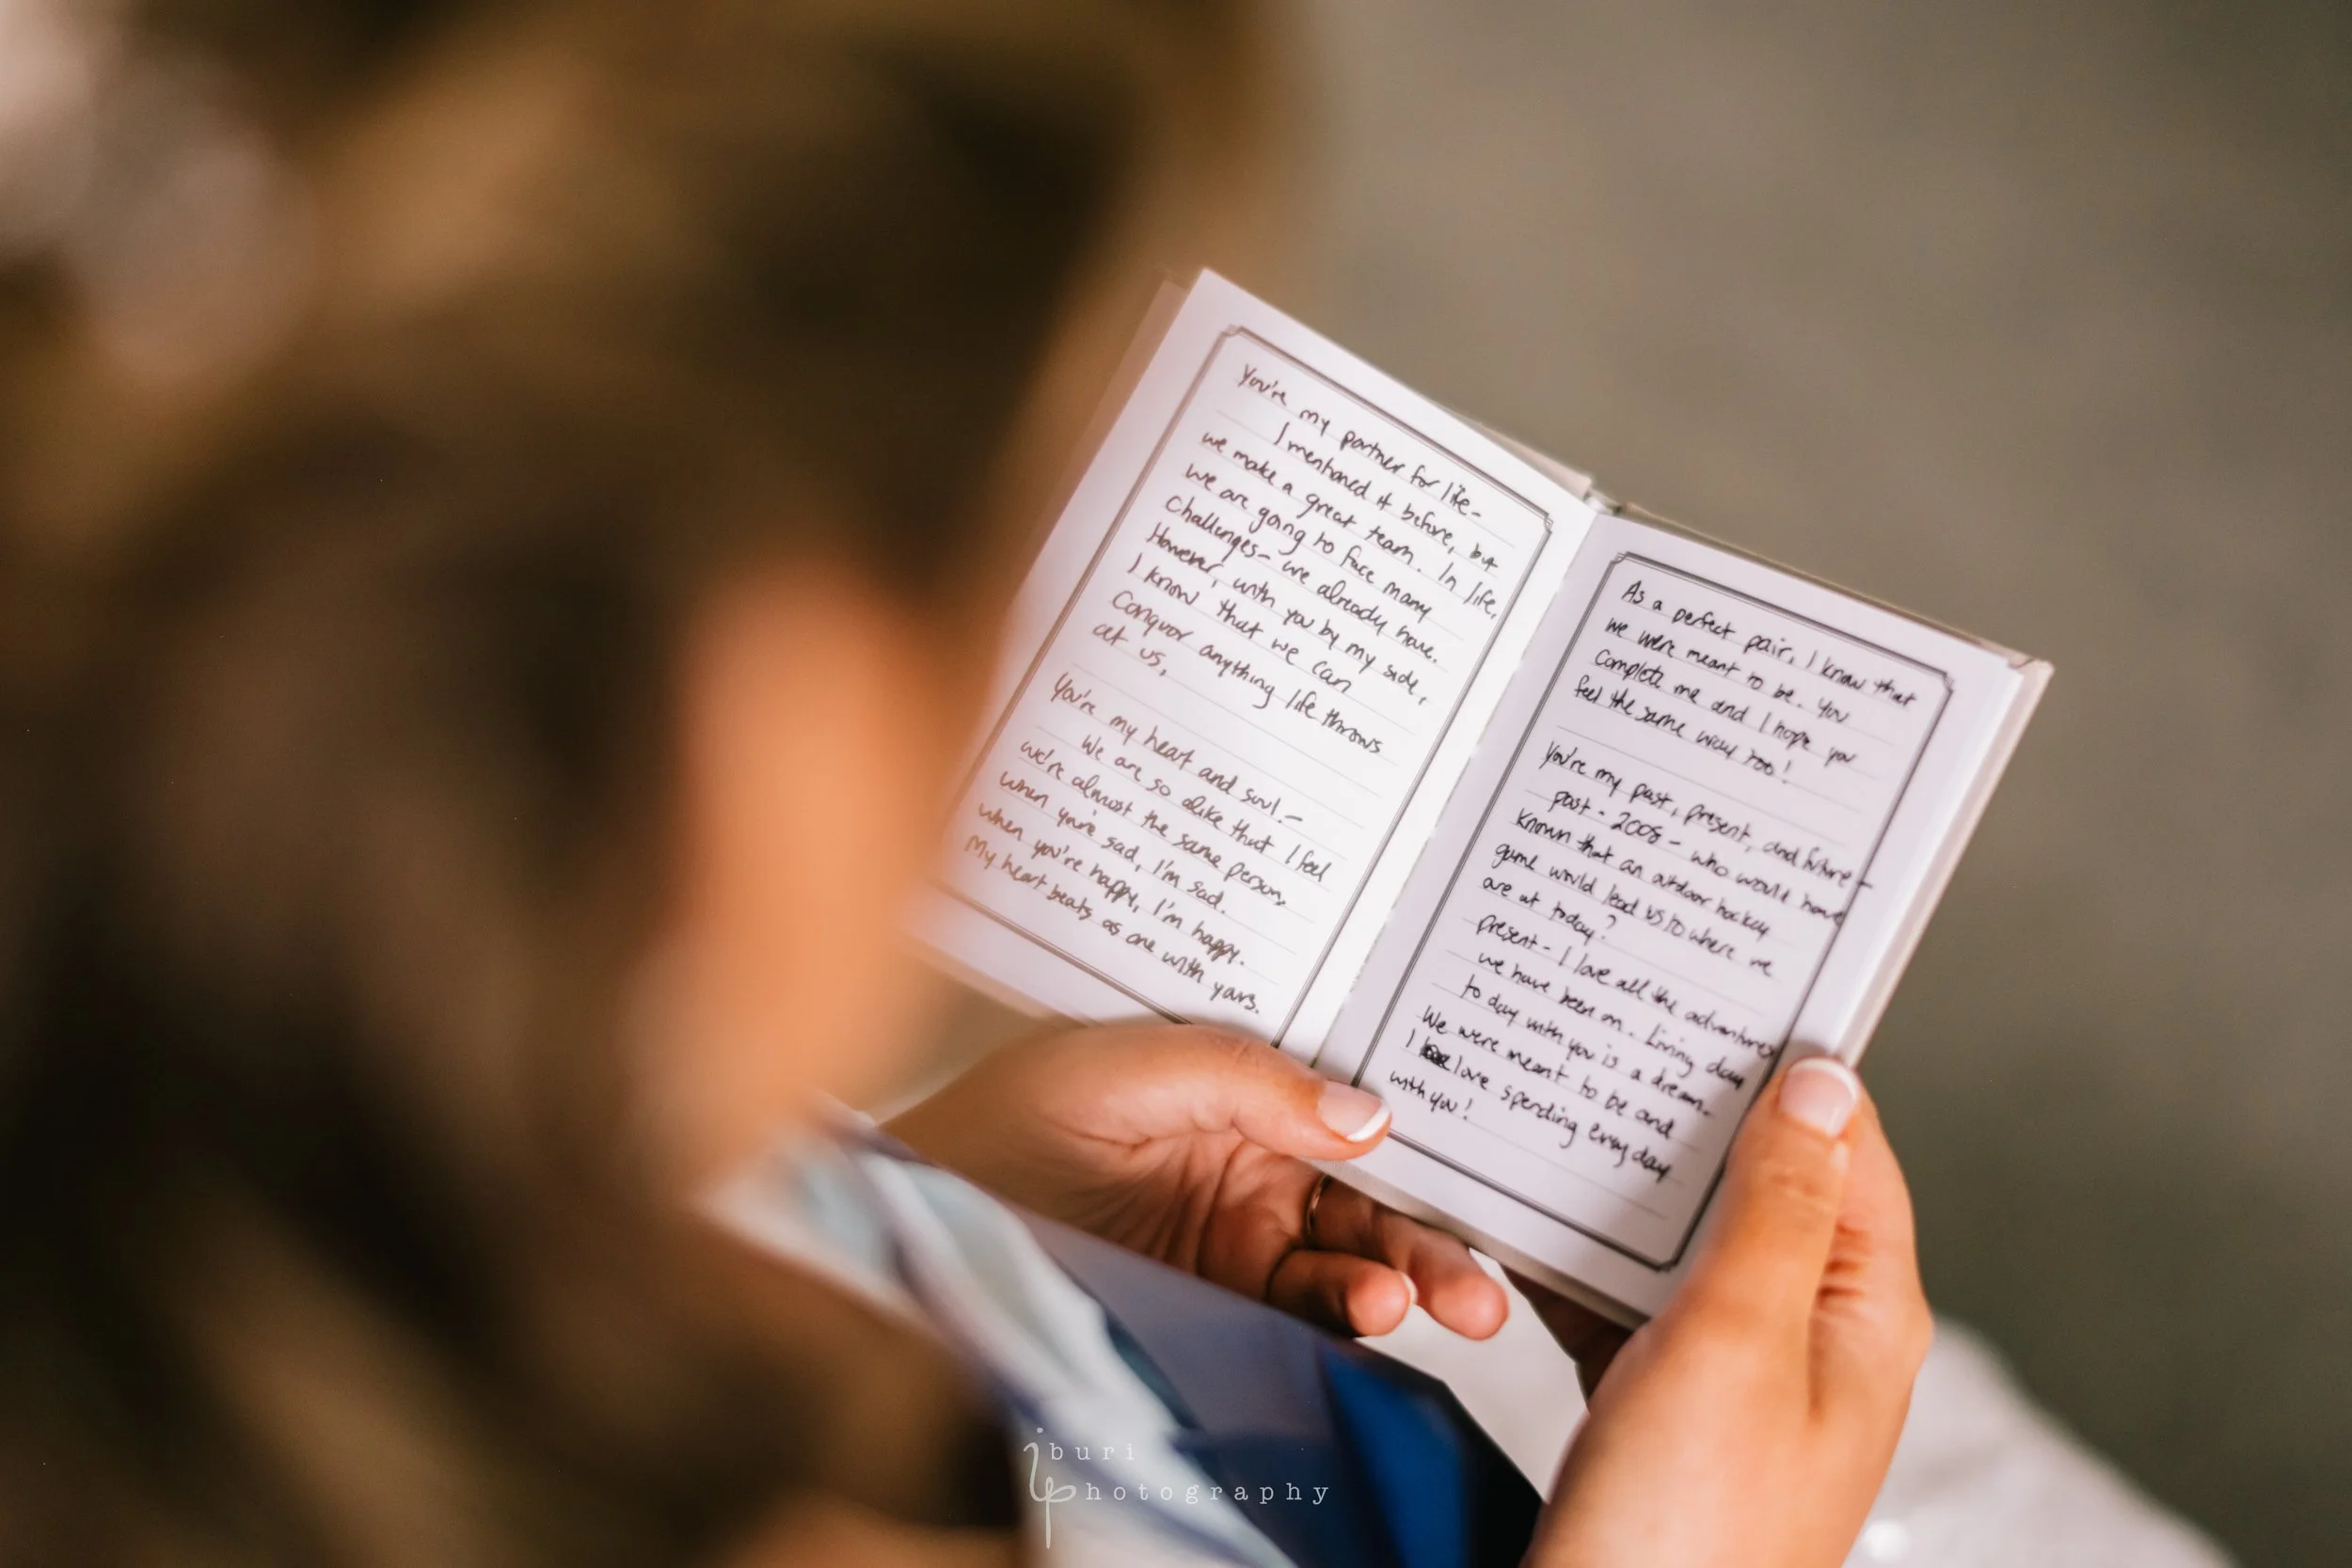 You're my partner for life-
I mentioned it before, but
we make a great team. In life,
we are going to face many
challenges- we already have.
However, with you by my side,
I know that we can
conquor anything life throws
at us.
You're my heart and soul.-
We are so alike that I feel
we're almost the same person,
when you're sad, I'm sad.
when you're happy, I'm happy.
My heart beats as one with yours.
As a perfect pair, I know that
we were meant to be. You
complete me and I hope you
feel the same way too!
You're my past, present, and future-
past - 2008 - who would have
known that an outdoor hockey
game would lead us to where we
are at today?
present - I love all the adventures
we have been on. Living day
to day with you is a dream.
We were meant to be and
I love spending every day
with you!
buri
photography